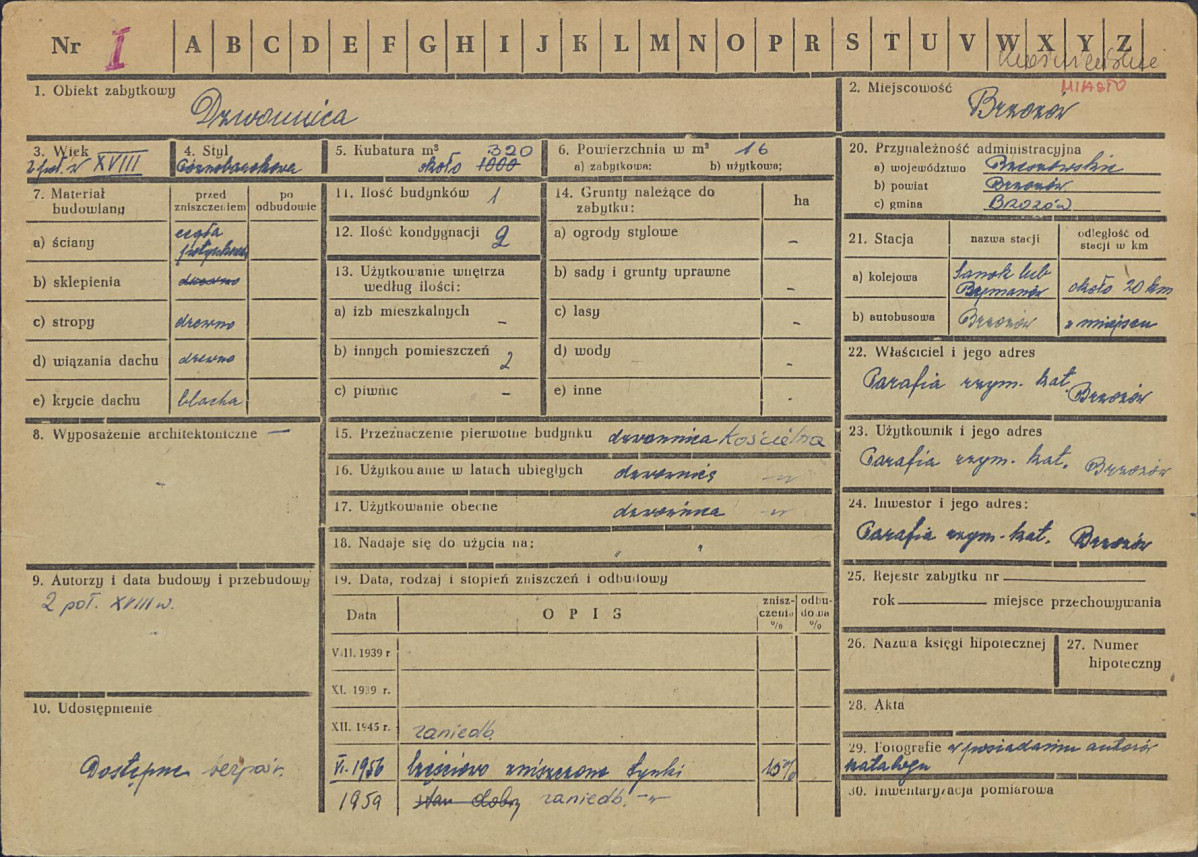 Nr I A B C D E F G H I J K L M N O P R S T U V W X Y Z
MIASTO
1. Obiekt zabytkowy
Dzwonnica
2. Miejscowość
Brzozów
3. Wiek
2 poł. w XVIII
4. Styl
Późnobarokowa
5. Kubatura m³ 320
około 1000
6. Powierzchnia w m² 16
a) zabytkowa: b) użytkowa;
20. Przynależność administracyjna
a) województwo Rzeszowskie
b) powiat Brzozów
c) gmina Brzozów
7. Materiał budowlany
przed zniszczeniem
po odbudowie
a) ściany cegła
b) sklepienia drewno
c) stropy drewno
d) wiązania dachu drewno
e) krycie dachu blacha
11. Ilość budynków 1
12. Ilość kondygnacji 2
13. Użytkowanie wnętrza
według ilości:
a) izb mieszkalnych –
b) innych pomieszczeń 2
c) piwnic –
14. Grunty należące do
zabytku:
ha
a) ogrody stylowe –
b) sady i grunty uprawne –
c) lasy –
d) wody –
e) inne –
21. Stacja
nazwa stacji
odległość od
stacji w km
a) kolejowa Sanok lub
Rymanów około 20 km
b) autobusowa Brzozów w miejscu
22. Właściciel i jego adres
Parafia rzym. kat.
Brzozów
8. Wyposażenie architektoniczne —
15. Przeznaczenie pierwotne budynku dzwonnica kościelna
16. Użytkowanie w latach ubiegłych dzwonnica
17. Użytkowanie obecne dzwonnica
18. Nadaje się do użycia na: " "
23. Użytkownik i jego adres
Parafia rzym. kat. Brzozów
24. Inwestor i jego adres:
Parafia rzym. kat. Brzozów
9. Autorzy i data budowy i przebudowy
2 poł. XVIII w.
19. Data, rodzaj i stopień zniszczeń i odbudowy
Data
O P I S
znisz-
czenia
%
odbu-
dowa
%
VIII. 1939 r
XI. 1939 r.
XII. 1945 r. zaniedb.
VI. 1956 częściowo zniszczone tynki 15%
1959 stan dobry zaniedb.
25. Rejestr zabytku nr
rok miejsce przechowywania
26. Nazwa księgi hipotecznej
27. Numer
hipoteczny
28. Akta
29. Fotografie w posiadaniu autorów
katalogu
30. Inwentaryzacja pomiarowa
10. Udostępnienie
Dostępna bezpośr.